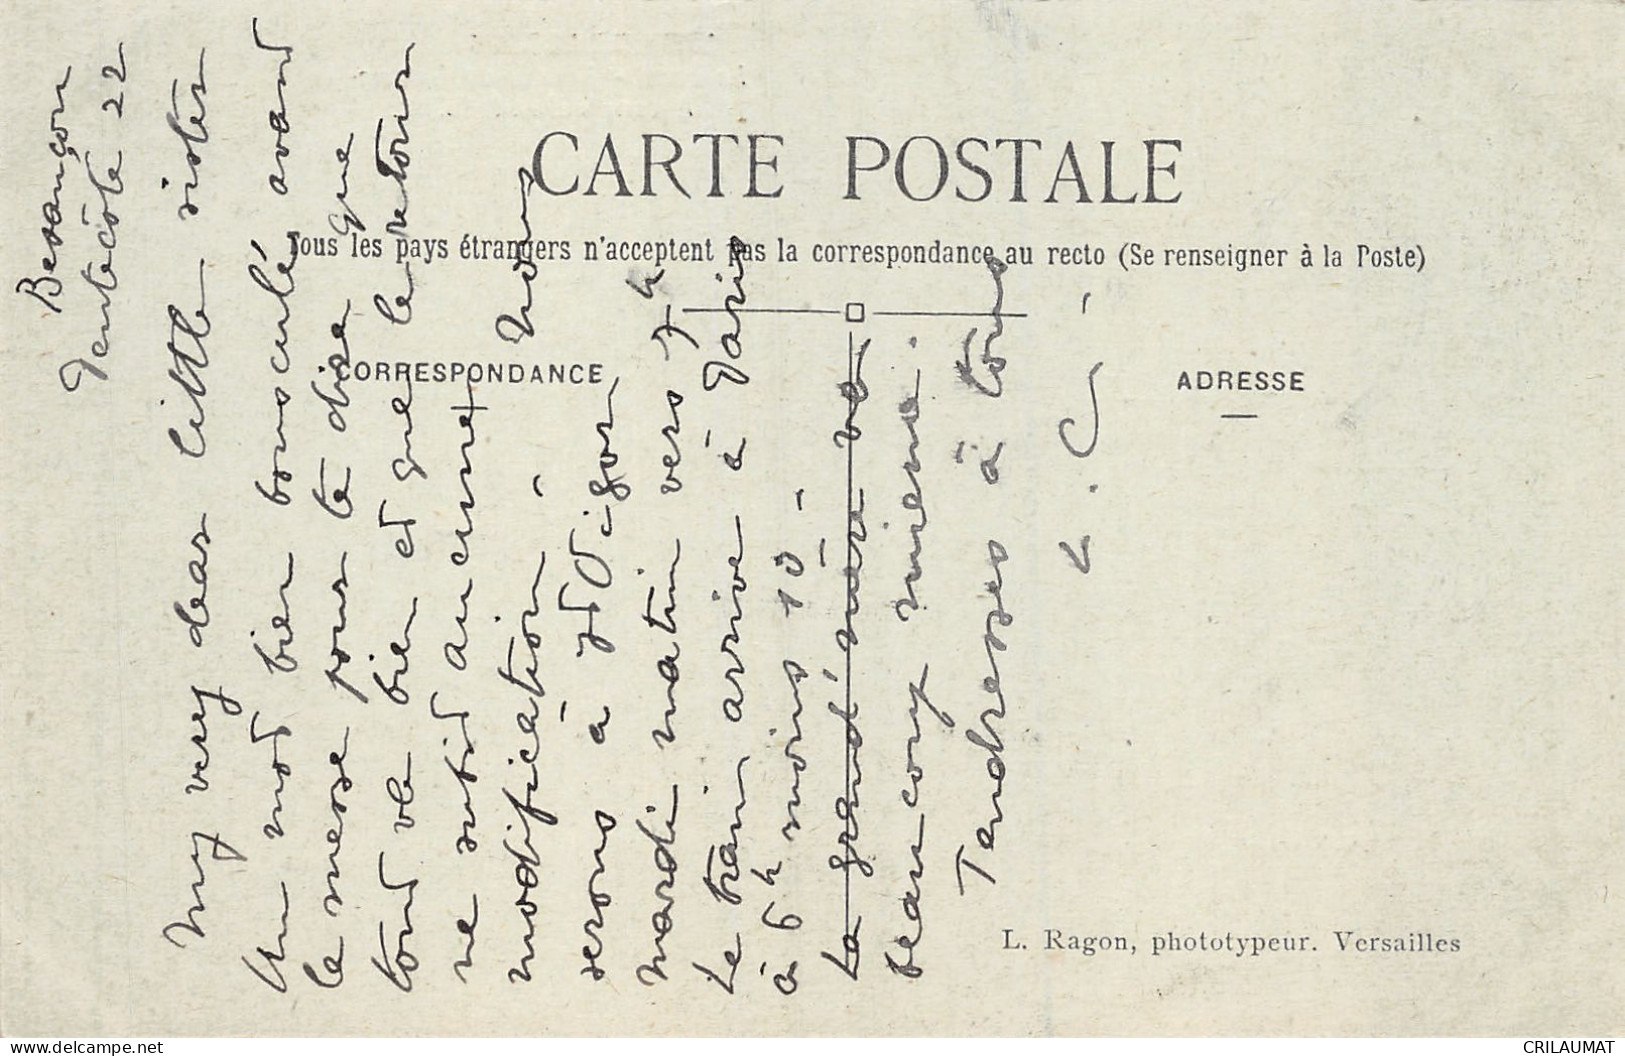 CARTE POSTALE
Tous les pays étrangers n'acceptent pas la correspondance au recto (Se renseigner à la Poste)
CORRESPONDANCE
ADRESSE
Besançon
Pentecôte 22
My very dear little sister
Un mot bien bousculé avant
la messe pour te dire que
tout va bien et que le retour
ne subit aucune
modification - Nous
serons à Dijon
mardi matin vers 7h
Le train arrive à Paris
à 6h moins 10 -
La grand'mère va
beaucoup mieux.
Tendresses à tous
L. C -
L. Ragon, phototypeur. Versailles
delcampe.net
CRILAUMAT